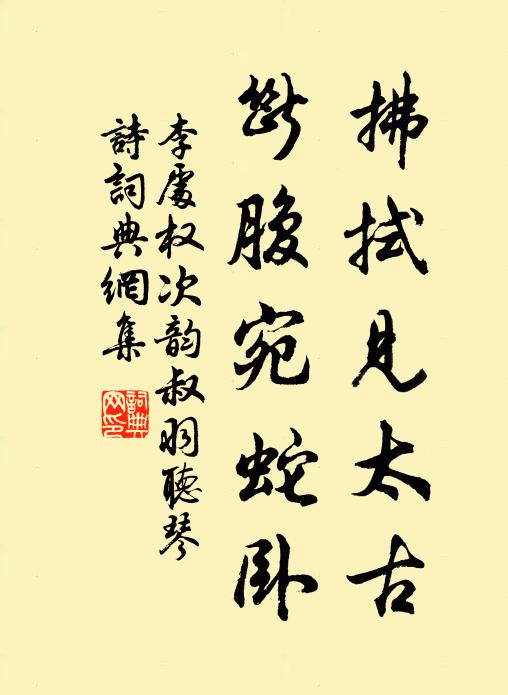 拂拭見太古
斷腹宛蛇卧
李處权次韵叔羽聽琴
詩詞典網集
詞典
网印